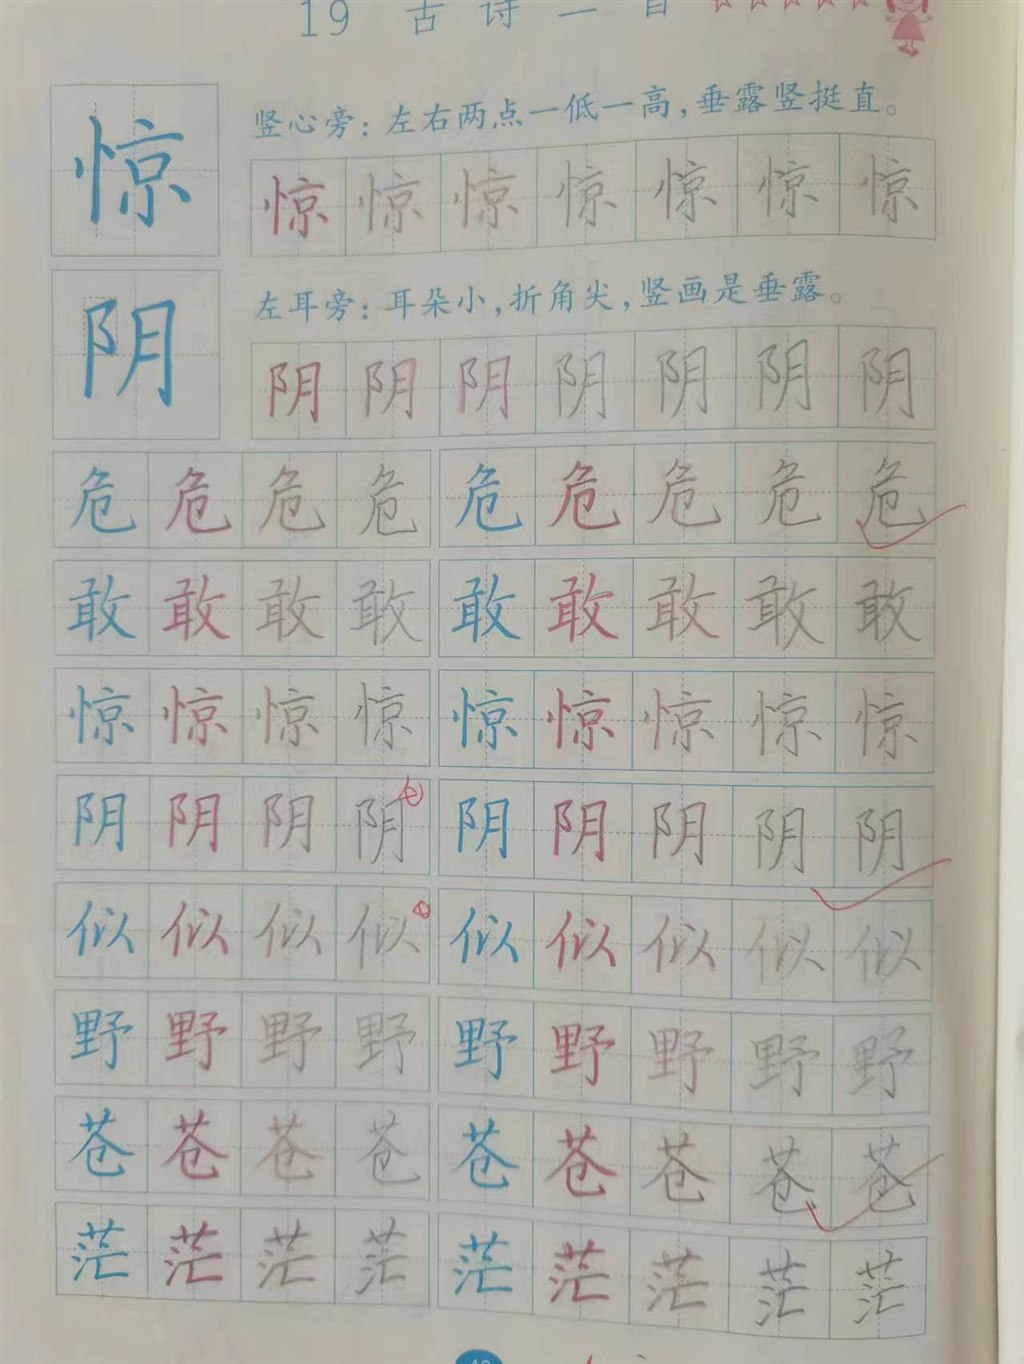 19 古诗二首
惊
竖心旁：左右两点一低一高，垂露竖挺直。
惊惊惊惊惊惊惊
阴
左耳旁：耳朵小，折角尖，竖画是垂露。
阴阴阴阴阴阴阴
危危危危危危危危危
敢敢敢敢敢敢敢敢敢
惊惊惊惊惊惊惊惊惊
阴阴阴阴阴阴阴阴阴
似似似似似似似似似
野野野野野野野野野
苍苍苍苍苍苍苍苍苍
茫茫茫茫茫茫茫茫茫